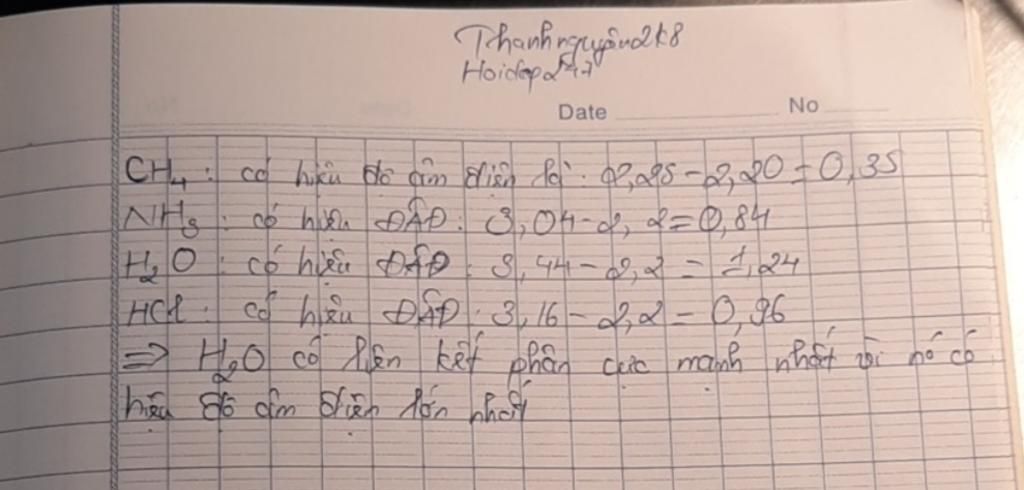 Thanhnguyên2k8
Hoidap247
Date No
CH4 : có hiệu độ âm điện là : 2,25 - 2,20 = 0,35
NH3 : có hiệu ĐÂĐ : 3,04 - 2,2 = 0,84
H2O : có hiệu ĐÂĐ : 3,44 - 2,2 = 1,24
HCl : có hiệu ĐÂĐ : 3,16 - 2,2 = 0,96
=> H2O có liên kết phân cực mạnh nhất vì nó có
hiệu độ âm điện lớn nhất